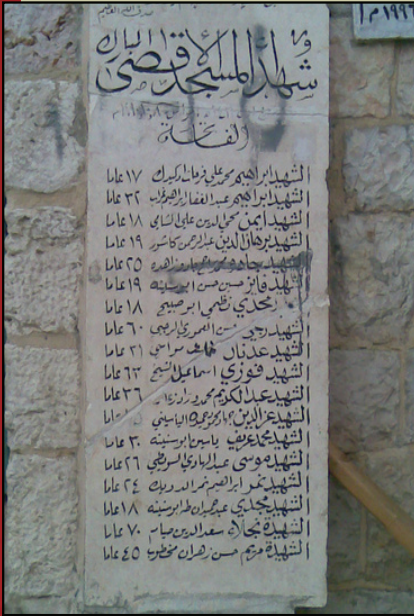 صدق الله العظيم
١٩٩٦م
شهداء المسجد الأقصى
الفاتحة
الشهيد ابراهيم محمد علي فرحات ادكيدك ١٧ عاما
الشهيد ابراهيم عبد الغفار ابراهيم غراب ٣٢ عاما
الشهيد ايمن محي الدين علي الشامي ١٨ عاما
الشهيد برهان الدين عبد الرحمن كاشور ١٩ عاما
الشهيد ٢٥ عاما
الشهيد فايز حسين حسن ابو سنينه ١٩ عاما
مجدي نظمي ابو صبيح ١٨ عاما
الشهيد ربحي حسن العموري الرجبي ٦٠ عاما
الشهيد عدنان خلف مواسي ٣١ عاما
الشهيد فوزي اسماعيل الشيخ ٦٣ عاما
الشهيد عبد الكريم محمد وراد زعاتره ٣٦ عاما
الشهيد عز الدين الياسيني
الشهيد محمد عريف ياسين ابو سنينه ٣٠ عاما
الشهيد موسى عبد الهادي السويطي ٢٦ عاما
الشهيد نمر ابراهيم نمر الدويك ٢٤ عاما
الشهيد مجدي عبد ابو سنينه ١٨ عاما
الشهيدة نجلاء سعد الدين صيام ٧٠ عاما
الشهيدة مريم حسن زهران مخطوب ٤٥ عاما